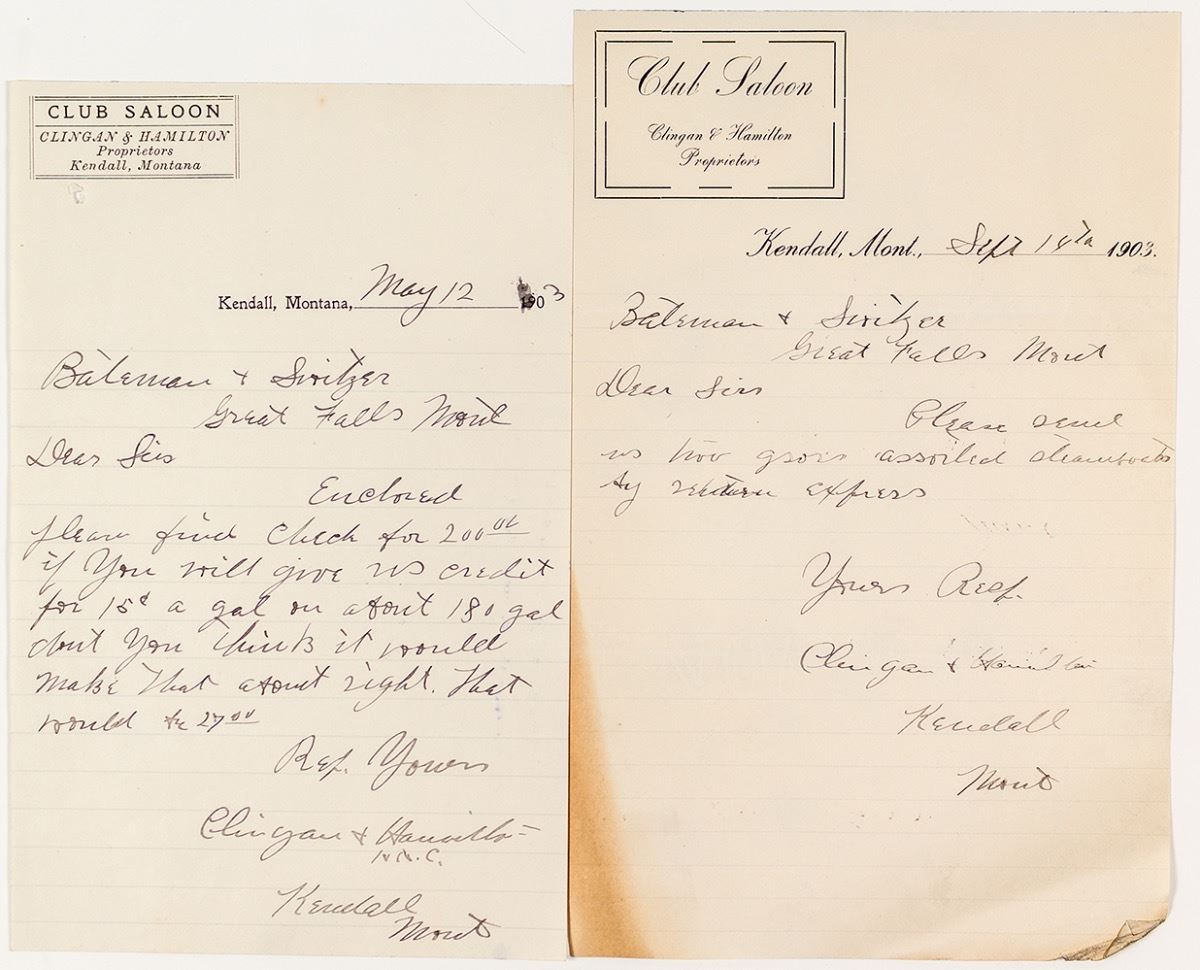 CLUB SALOON
CLINGAN & HAMILTON
Proprietors
Kendall, Montana
Kendall, Montana, May 12 1903
Bateman & Switzer
Great Falls Mont
Dear Sirs
Enclosed
please find check for 200 00
if You will give us credit
for 15¢ a gal on about 180 gal
dont You think it would
make that about right. that
would be 27 00
Resp. Yours
Clingan & Hamilton
Kendall
Mont
Club Saloon
Clingan & Hamilton
Proprietors
Kendall, Mont., Sept 1903.
Bateman & Switzer
Great Falls Mont
Dear Sirs
Please send
us two gross assorted
by return express
Yours Resp.
Clingan & Hamilton
Kendall
Mont